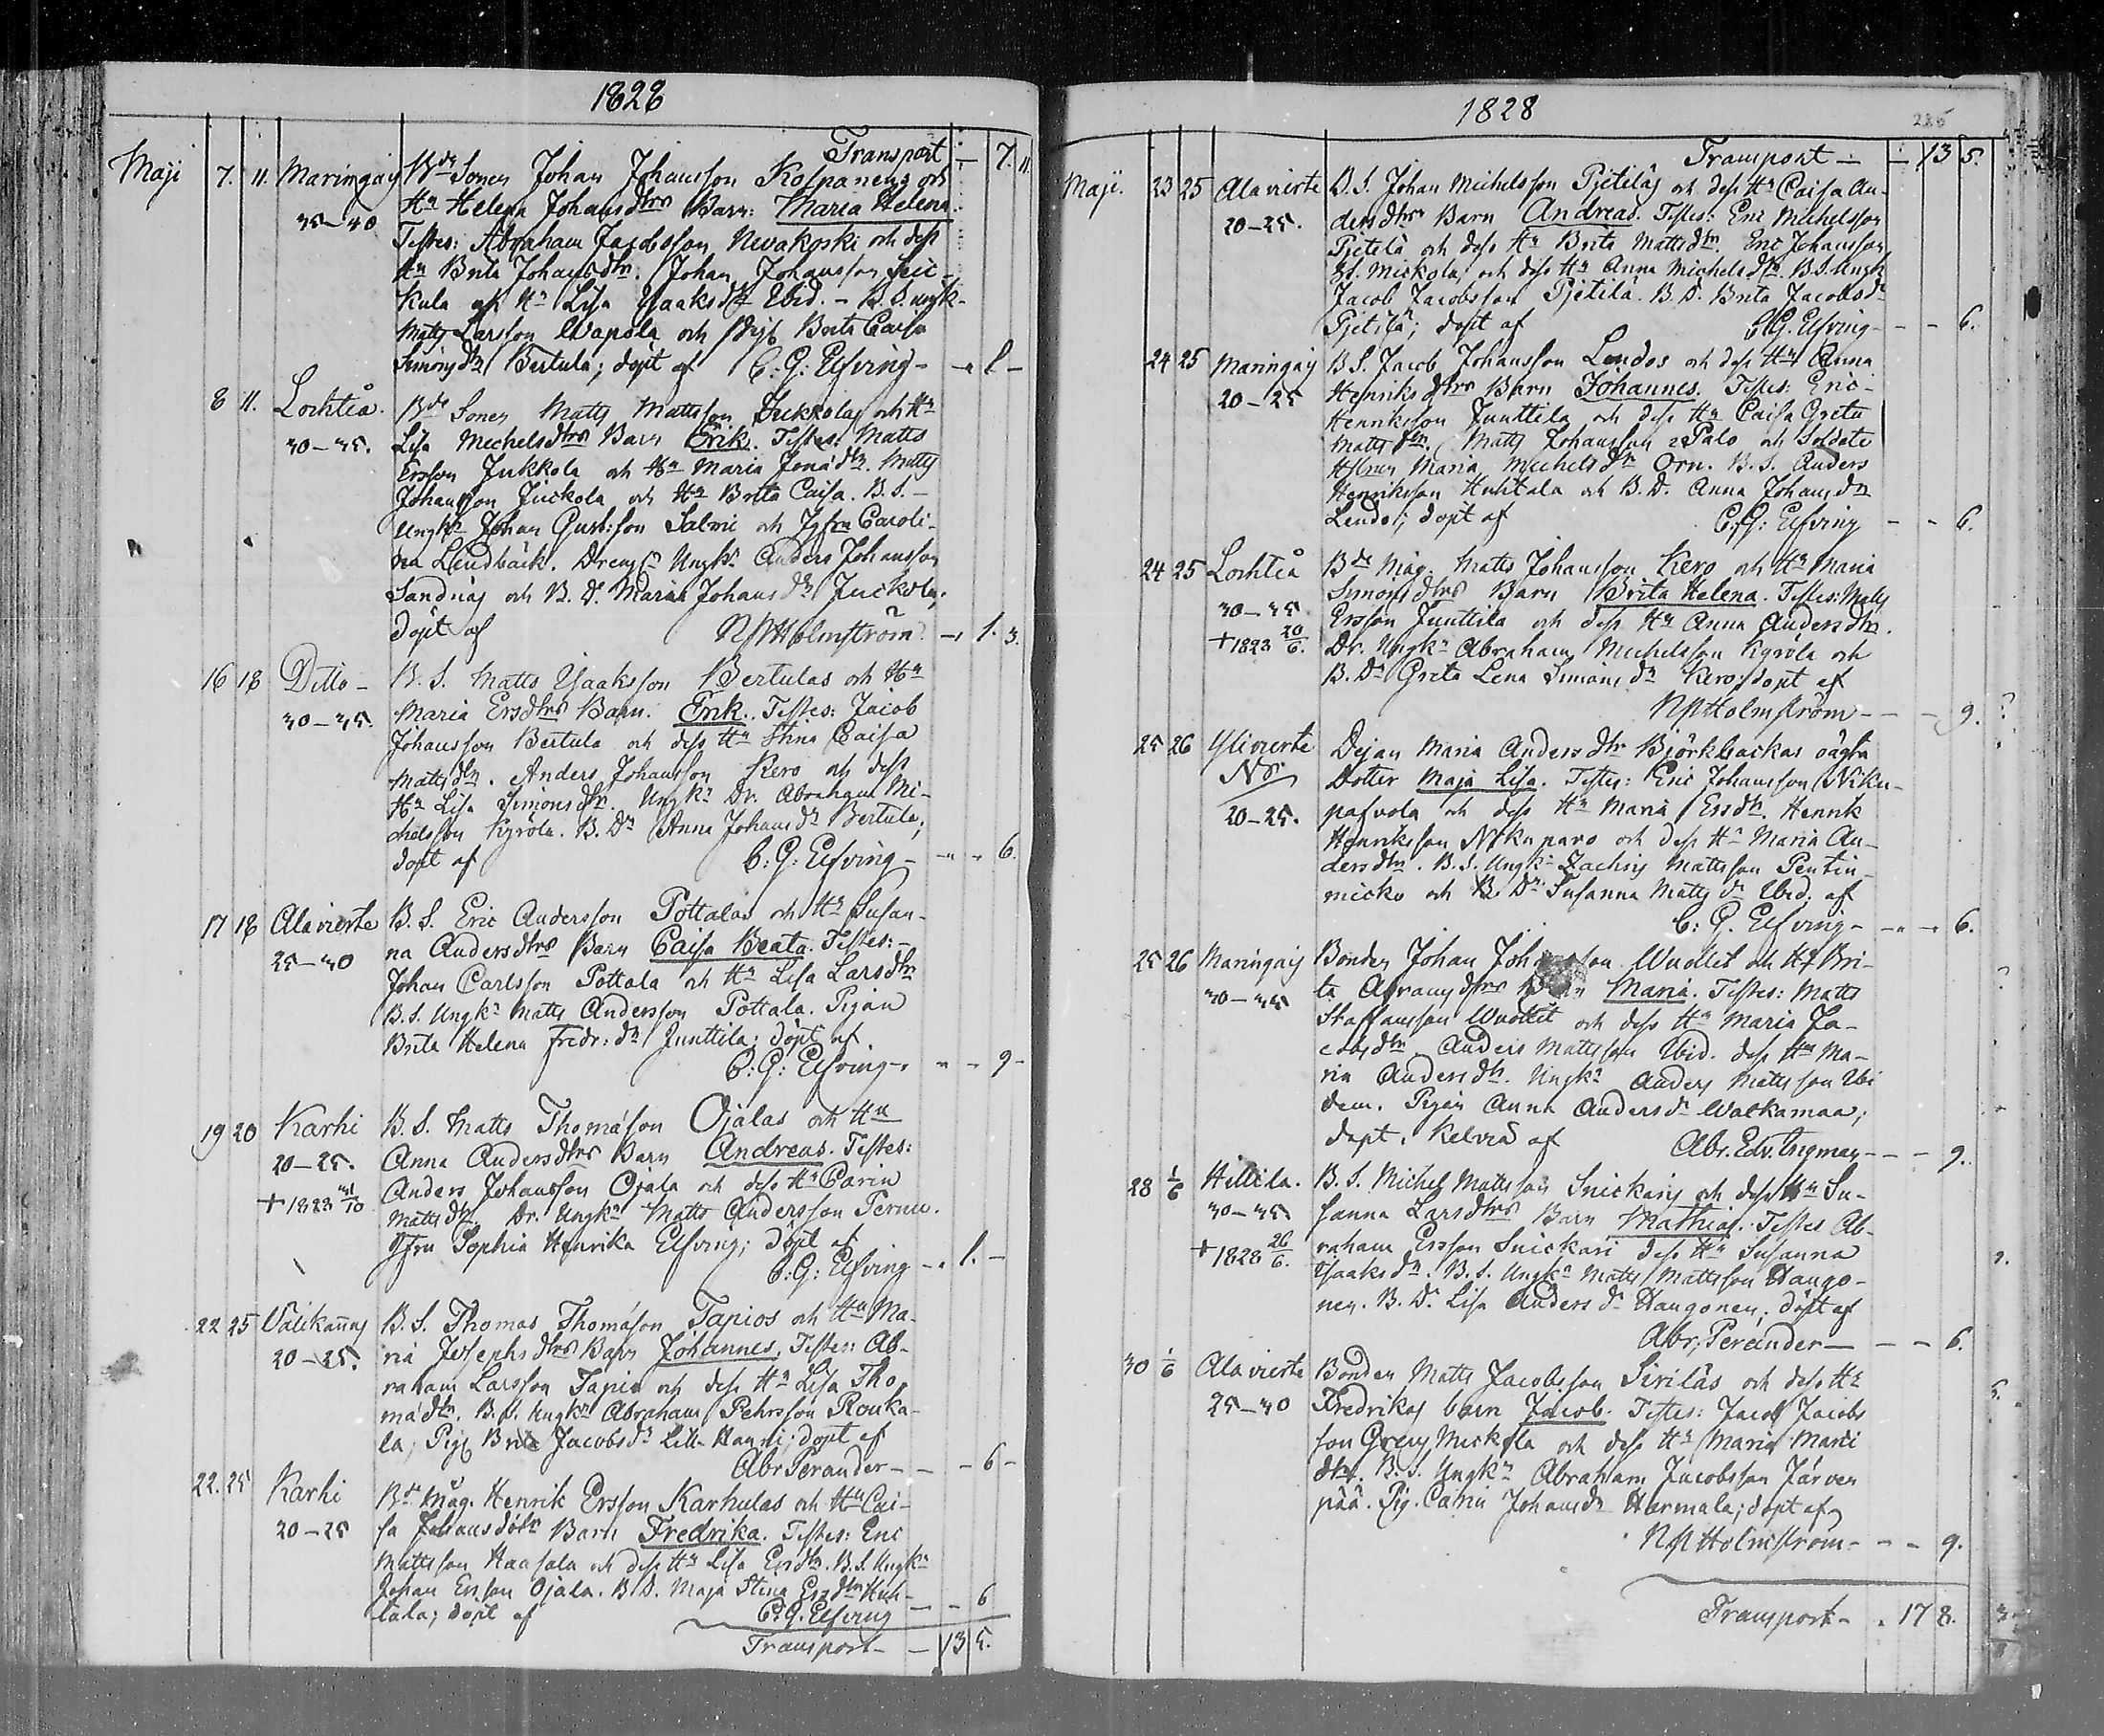 1828
Transport — 7. 11
Maji 7. 11. Maringais Bde Sonen Johan Johansson Kospanens och
35–40 Hu Helena Johansdtrs Barn: Maria Helena.
Testes: Abraham Jacobsson Nevakoski och dess
Hu Brita Johansdtr. Johan Johansson
kula och Hu Lisa Isaaksdtr Ibid. – B. S. ungk.
Matts Larsson Wapola och Pig. Brita Caisa
Simonsdtr Bertula; döpt af C: G: Elfving – „ 1 –
8 11. Lochteå. Bde Sonen Matts Mattsson Juckolas och Hu
30–35. Lisa Michelsdtrs Barn Erik. Testes: Matts
Ersson Juckola och Hu Maria Jonædtr. Matts
Johansson Juckola och Hu Brita Caisa. B. S. –
Ungkn Johan Gust:son Salmi och Jgfru Caroli-
na Lindbäck. Drengn Ungkn Anders Johansson
Sandnäs och B. D. Maria Johansdr Juckola;
döpt af Holmström – „ 1. 3.
16 18 Ditto – B. S. Matts Isaaksson Bertulas och Hu
30–35. Maria Ersdtrs Barn. Erik. Testes: Jacob
Johansson Bertula och dess Hu Stina Caisa
Mattsdtr. Anders Johansson Kero och dess
Hu Lisa Simonsdtr. Ungkn Dr. Abraham Mi-
chelsson Kyröla. B. Dr Anna Johansdr Bertula;
döpt af C: G: Elfving – – „ – 6.
17 18 Alavieste B. S. Eric Andersson Pottalas och Hu Susan-
25–30 na Andersdtrs Barn Caisa Beata. Testes: –
Johan Carlsson Pottala och Hu Lisa Larsdtr
B. S. Ungkn Matts Andersson Pottala. Pigan
Brita Helena Fredr: dr Junttila; döpt af
C: G: Elfving – „ – 9 –
19 20 Karhi B. S. Matts Thomasson Ojalas och Hu
20–25. Anna Andersdtrs Barn Andreas. Testes:
Anders Johansson Ojala och dess Hu Carin
Mattsdtr. Dr. Ungkn Matts Andersson Pernu.
Jfru Sophia Henrika Elfving; döpt af
C: G: Elfving – „ 1. –
22 25 Välikannus B. S. Thomas Thomasson Tapios och Hu Ma-
20–25. ria Josephsdtrs Barn Johannes. Testes: Ab-
raham Larsson Tapio och dess Hu Lisa Tho-
mædtr. B. S. Ungkn Abraham Pehrsson Rouka-
la; Pig. Brita Jacobsdr Lill Hanni; döpt af
Abr Perander – – – 6 –
22. 25 Karhi Bds Måg. Henrik Ersson Karhulas och Hu Cai-
20–25 sa Johansdotr Barn Fredrika. Testes: Eric
Mattsson Haasala och dess Hu Lisa Ersdtr. B. S. Ungkn
Johan Ersson Ojala. B. D. Maja Stina Ersdtr Huh-
tala; döpt af C. G. Elfving – – 6
Transport – – 13 5.
1828
226
Transport – – 13 5.
Maji. 23 25 Alavieste B. S. Johan Michelsson Pjetiläs och dess Hu Caisa An-
20–25. dersdtrs Barn Andreas. Testes: Eric Michelsson
Pjetilä och dess Hu Brita Mattsdtr. Eric Johansson
Mickola och dess Hu Anna Michelsdtr. B. S. Ungk
Jacob Jacobsson Pjetilä. B. D. Brita Jacobsdr
Pjetilä; döpt af C. G. Elfving – – – 6.
24 25 Maringais B. S. Jacob Johansson Lindos och dess Hu Anna
20–25 Henriksdtrs Barn Johannes. Testes: Eric –
Henriksson Junttila och dess Hu Caisa Greta
Mattsdtr. Matts Johansson Palo och Soldats
Hustrun Maria Michelsdtr Orn. B. S. Anders
Henriksson Huhtala och B. D. Anna Johansdtr
Lindos; döpt af C. G: Elfving – – 6.
24 25 Lochteå Bde Måg. Matts Johansson Kero och Hu Maria
30–35. Simonsdtrs Barn Brita Helena. Testes: Matts
Ersson Junttila och dess Hu Anna Andersdtr.
Dr. Ungkn Abraham Michelsson Kyröla och
B. Dr Greta Lena Simonsdr Kero; döpt af
Holmström – – – 9.
25 26 Ylivieste Pejan Maria Andersdtr Björkbackas oägta
20–25. Dotter Maja Lisa. Testes: Eric Johansson Niku-
och dess Hu Maria Ersdtr. Henrik
Henriksson och dess Hu Maria An-
dersdtr. B. S. Ungkn Zachris Mattsson Pentin-
micko och B. Dr Susanna Mattsdr Ibid. af
C: G. Elfving – – „ – 6.
25 26 Maringais Bonden Johan Johansson Wuollet och Hu Bri-
30–35 ta Abramsdtrs Barn Maria. Testes: Matts
Staffansson Wuollet och dess Hu Maria Ja-
cobsdtr Anders Mattsson Ibid. dess Hu Ma-
ria Andersdtr. Ungkn Anders Mattsson Ibi
dem. Pigan Anna Andersdr Walkamaa;
döpt i Kelviå af Abr. Edv. Ingman – – – 9.
28 1/6 Hillilä. B. S. Michel Mattsson Snickaris och dess Hu Su-
30–35 sanna Larsdtrs Barn Mathias. Testes Ab-
+ 1828 26/6. raham Ersson Snickari dess Hu Susanna
Isaaksdtr. B. S. Ungkn Matts Mattsson Haugo-
nen. B. Dr Lisa Andersdr Haugonen; döpt af
Abr. Perander – – – 6.
30 1/6 Alavieste Bonden Matts Jacobsson Siriläs och dess Hu
25–30 Fredrikas barn Jacob. Testes: Jacob Jacobs
son Mickola och dess Hu Maria
dtr. B. S. Ungkn Abraham Jacobsson Järven
pää. Pig. Carin Johansdr Harmala; döpt af
Holmström – – – 9.
Transport – „ 17 8.